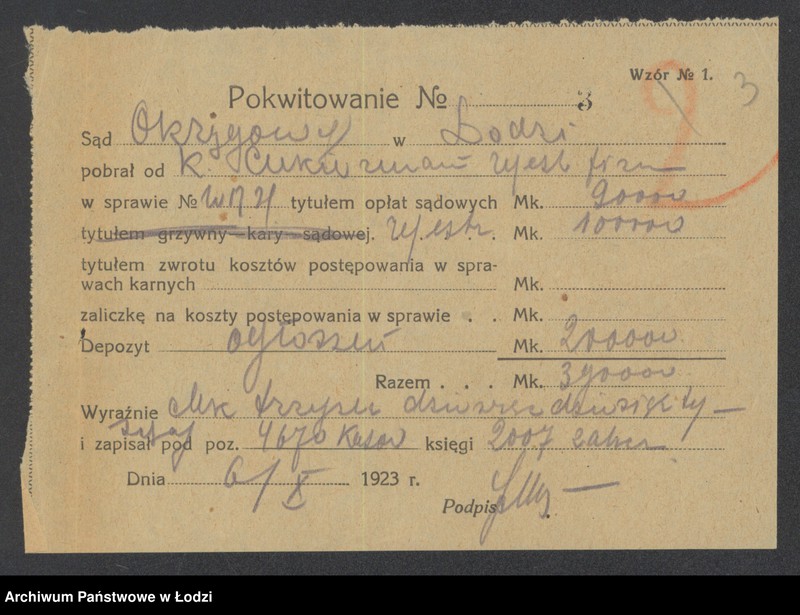 Wzór № 1.
3
Pokwitowanie № 3
Sąd Okręgowy w Łodzi
pobrał od K. Cukierman rejestr firm
w sprawie № tytułem opłat sądowych Mk. 90000
tytułem grzywny kary sądowej. rejestr. Mk. 100000
tytułem zwrotu kosztów postępowania w spra-
wach karnych Mk.
zaliczkę na koszty postępowania w sprawie . . Mk.
Depozyt ogłoszeń Mk. 200000
Razem . . . Mk. 390000
Wyraźnie Mk trzysta dziewięćdziesiąt ty-
i zapisał pod poz. 4670 księgi 2007
Dnia 6/X 1923 r.
Podpis
Archiwum Państwowe w Łodzi